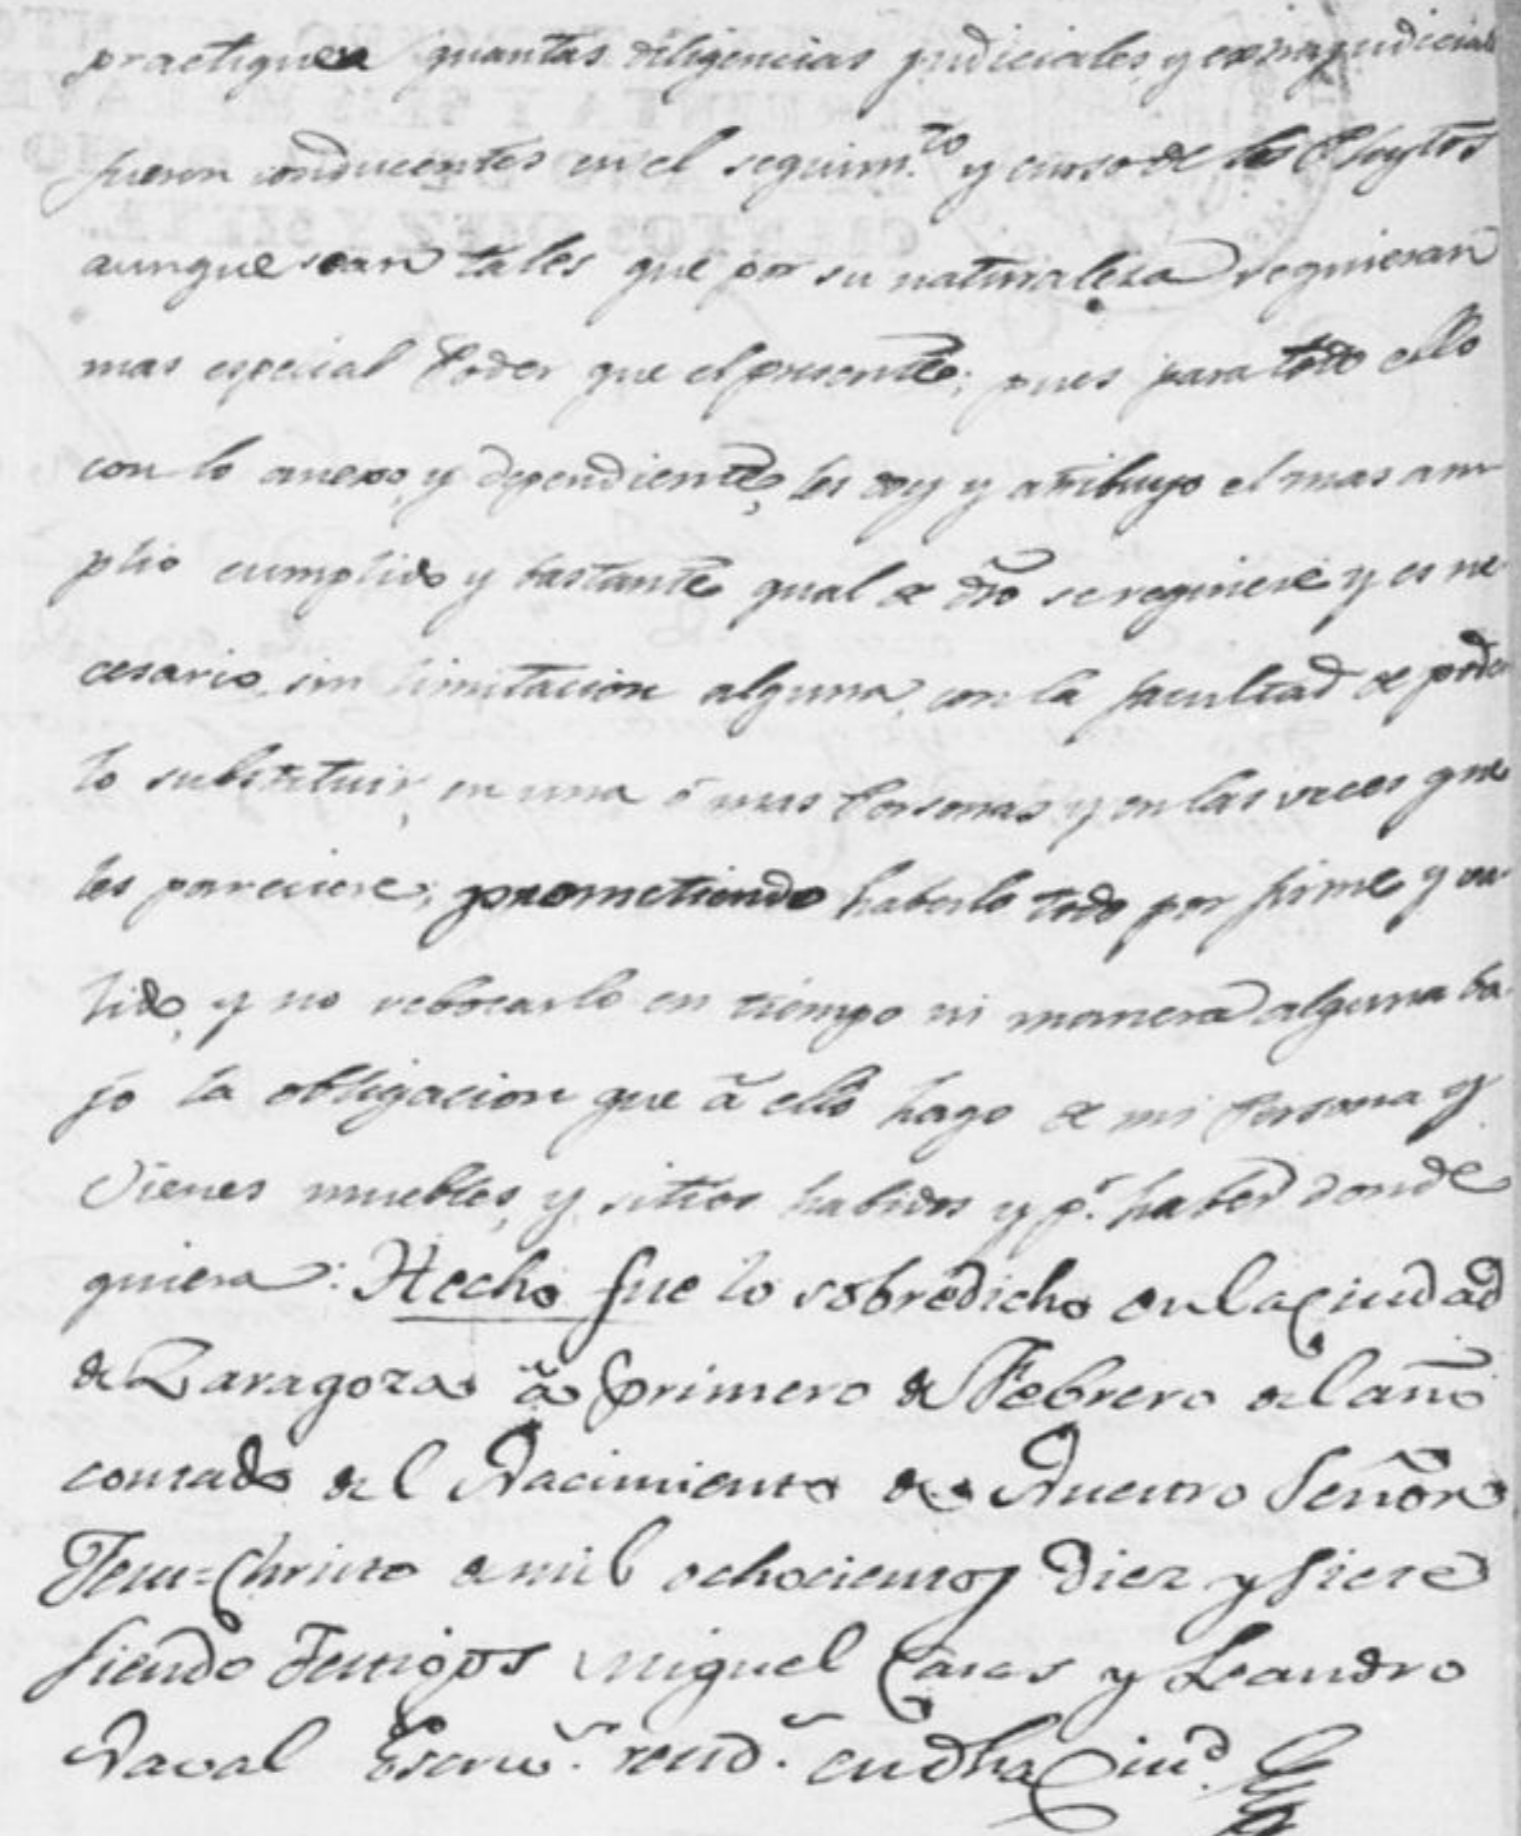 practiquen quantas diligencias judiciales, y extrajudiciales
fueren conducentes en el seguim.to y curso de los Pleytos
aunque sean tales que por su naturaleza requieran
mas especial Poder que el presente; pues para todo ello
con lo anexo, y dependiente, les doy y atribuyo el mas am
plio cumplido y bastante qual de dro se requiere y es ne
cesario, sin limitacion alguna, con la facultad de poder
lo substituir, en una ó mas Personas y en las veces que
les pareciere; prometiendo haberlo todo por firme y va
lido, y no rebocarlo en tiempo ni manera alguna ba
jo la obligacion que â ello hago de mi Persona y
Vienes muebles, y sitios habidos y p.r haber donde
quiera: Hecho fue lo sobredicho en la Ciudad
de Zaragoza â primero de Febrero del año
contado del Nacimiento de Nuestro Señor
Jesu=Christo de mil ochocientos diez y siete
siendo Testigos Miguel Casas y Leandro
Naval Escriv.s resid.s en dha Ciud.d